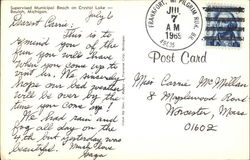 Supervised Municipal Beach on Crystal Lake —
Beulah, Michigan.
July 6
Dearest Carrie:
This is to
remind you of the
fun you will have
when you come up to
visit us. We sincerely
hope our bad weather
will be over by the
time you come up!
We had rain and
fog all day on the
4th but yesterday was
beautiful. Much love
FRANKFORT,
JUL
7
AM
1965
Post Card
Miss Carrie McMillan
8 Maplewood Road
Worcester, Mass
01602